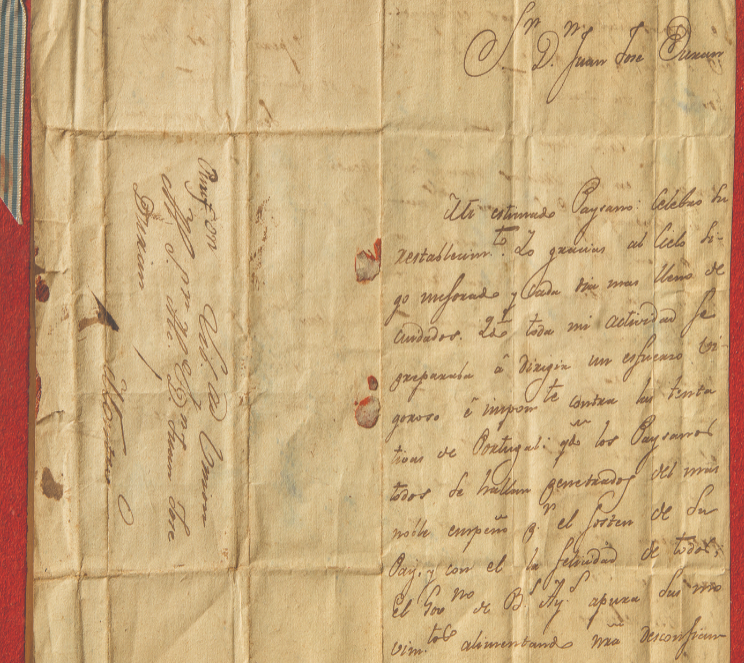 S.r D.n Juan Jose Duran
Mi estimado Paysano: Celebro su
restablecim.to Yo gracias al Cielo si-
go mejorado y cada dia mas lleno de
cuidados. Q.do toda mi actividad se
preparaba á dirigir un esfuerzo vi-
goroso é impon.te contra las tenta
tivas de Portugal: q.do los Paysanos
todos se hallan penetrados del mas
noble empeño p.r el sosten de su
Pays, y con el la felicidad de todos:
El Gov.no de B.s Ay.s apura sus mo
vim.tos alimentando nrã desconfian
Union
Al S.or
D.n Juan Jose
Duran